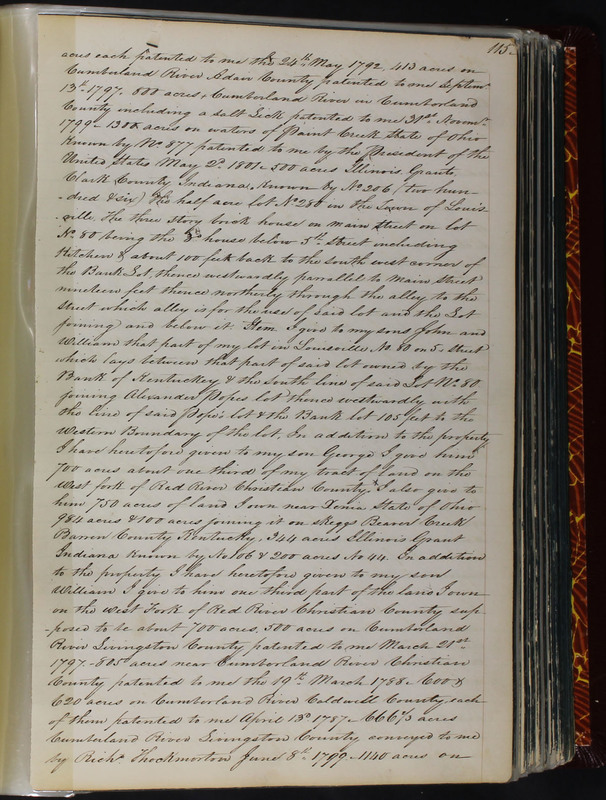 115
acres each patented to me the 24th May 1792, 413 acres on
Cumberland River Adair County patented to me Septemr
13th 1797. 800 acres, Cumberland River in Cumberland
County including a Salt Lick patented to me 31st Novemr
1799 - 1300 acres on waters of Paint Creek State of Ohio
Known by No 877 patented to me by the President of the
United States May 2d 1801 - 500 acres Illinois Grants,
Clark County Indiana, Known by No 206 (two hun-
-dred & six) The half acre lot No 280 in the Town of Louis
-ville, the three Story brick house on Main Street on lot
No 80 being the house below 5th Street including
Kitchen & about 100 feet back to the south west corner of
the Bank Lot, thence westwardly parrallel to Main Street
nineteen feet thence northerly through the alley to the
Street which alley is for the use of said lot and the Lot
joining and below it. Item. I give to my sons John and
William that part of my lot in Louisville No 80 on 5th Street
which lays between that part of said lot owned by the
Bank of Kentuckey & the South line of said Lot No 80.
joining Alexander Popes lot thence westwardly with
the line of said Pope's lot & the Bank lot 105 feet to the
Western Boundary of the lot, In addition to the property
I have heretofore given to my son George I give him
700 acres about one third of my tract of land on the
West fork of Red River Christian County, I also give to
him 750 acres of land I own near Xenia State of Ohio
984 acres & 100 acres joining it on Skeggs Beaver Creek
Barren County Kentucky, 344 acres Ellinois Grant
Indiana Known by No 106 & 200 acres No 44. In addition
to the property I have heretofore given to my son
William I give to him one third part of the land I own
on the West Fork of Red River Christian County sup
-posed to be about 700 acres, 500 acres on Cumberland
River Livingston County patented to me March 21st
1797 - 805 acres near Cumberland River Christian
County patented to me the 19th March 1788 - 600 &
620 acres on Cumberland River Caldwell County, each
of them patented to me April 13th 1787 - 666 2/3 acres
Cumberland River Livingston County conveyed to me
by Richd Thockmorton June 8th 1799 - 1140 acres on